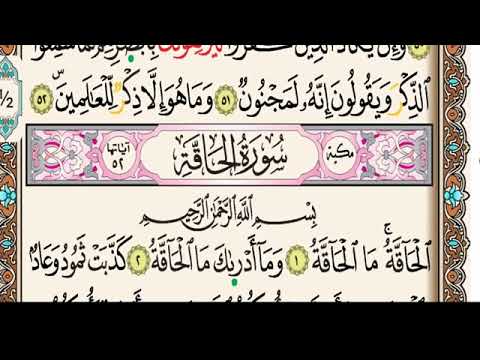 وَإِن يَكَادُ الَّذِينَ كَفَرُوا لَيُزْلِقُونَكَ بِأَبْصَٰرِهِمْ لَمَّا سَمِعُوا
الذِّكْرَ وَيَقُولُونَ إِنَّهُ لَمَجْنُونٌ ٥١ وَمَا هُوَ إِلَّا ذِكْرٌ لِّلْعَٰلَمِينَ ٥٢
1/2
مكية سُورَةُ الحَاقَّةِ آياتها ٥٢
بِسْمِ اللَّهِ الرَّحْمَٰنِ الرَّحِيمِ
الْحَاقَّةُ مَا الْحَاقَّةُ ١ وَمَا أَدْرَىٰكَ مَا الْحَاقَّةُ ٢ كَذَّبَتْ ثَمُودُ وَعَادٌ